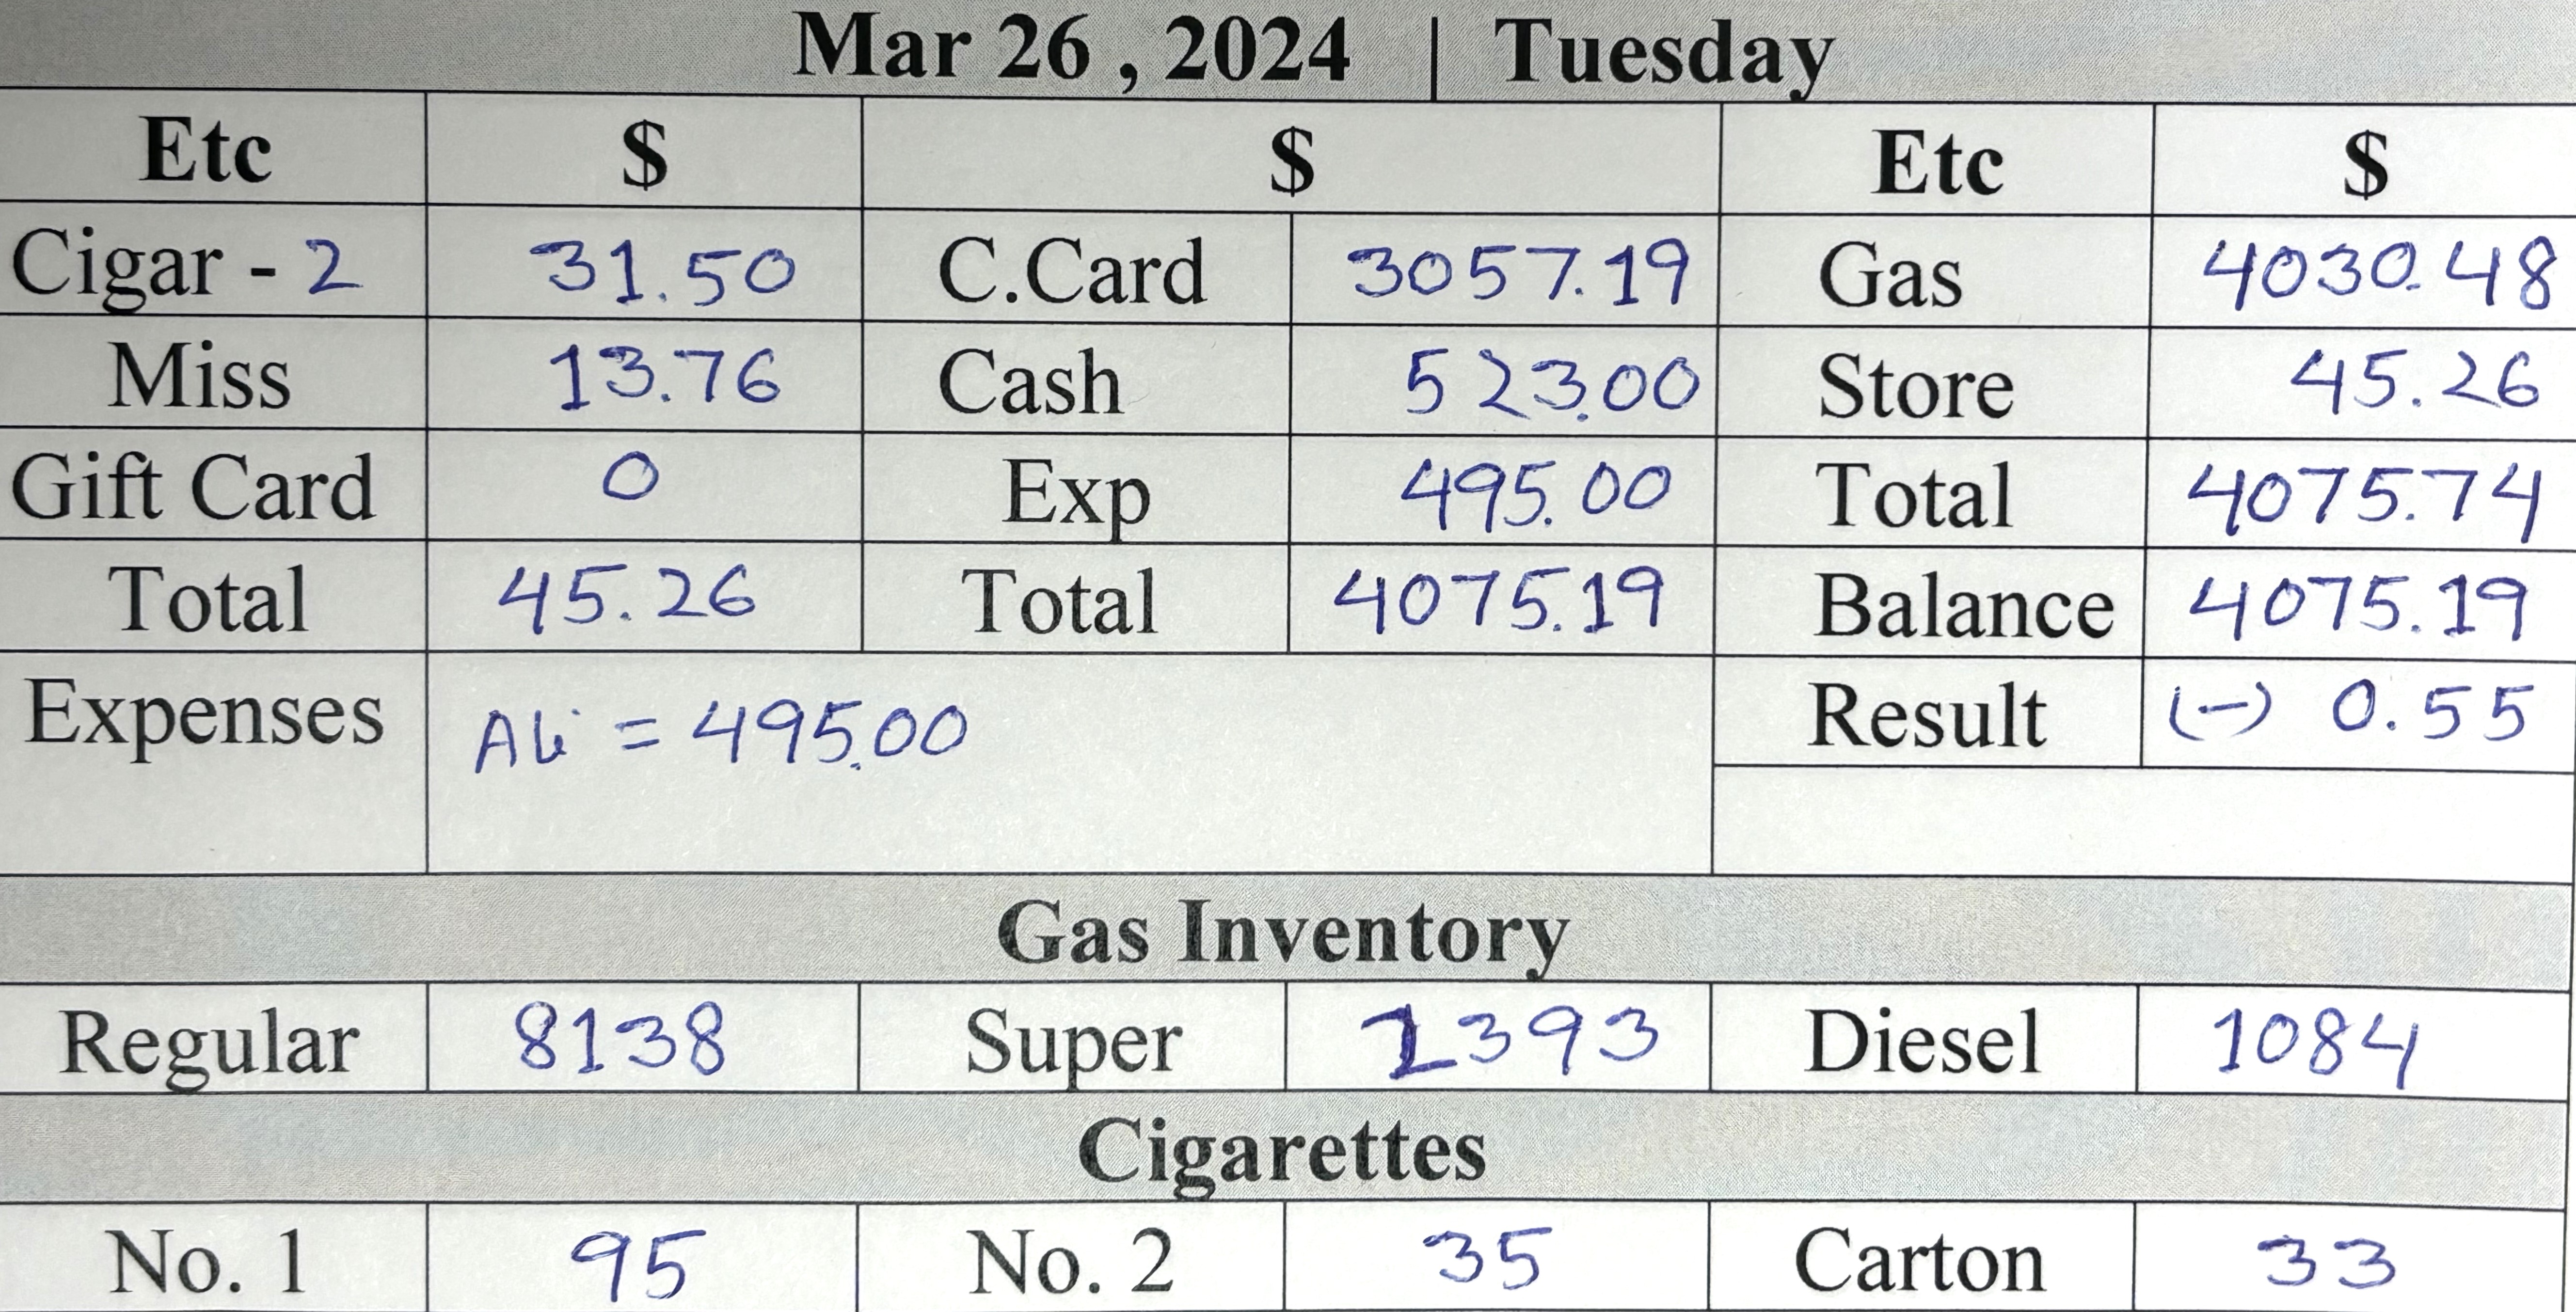 Mar 26 , 2024 | Tuesday
Etc $ $ Etc $
Cigar - 2 31.50 C.Card 3057.19 Gas 4030.48
Miss 13.76 Cash 523.00 Store 45.26
Gift Card 0 Exp 495.00 Total 4075.74
Total 45.26 Total 4075.19 Balance 4075.19
Expenses Ali = 495.00 Result (-) 0.55
Gas Inventory
Regular 8138 Super 1393 Diesel 1084
Cigarettes
No. 1 95 No. 2 35 Carton 33